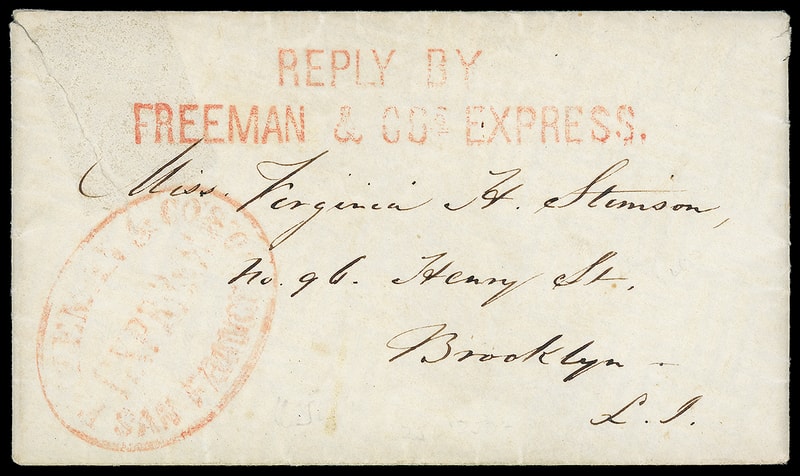 REPLY BY
FREEMAN & COS EXPRESS.
Miss. Virginia H. Stimson,
No. 96. Henry St.
Brooklyn
L. I.
FREEMAN & CO'S
EXPRESS
SAN FRANCISCO